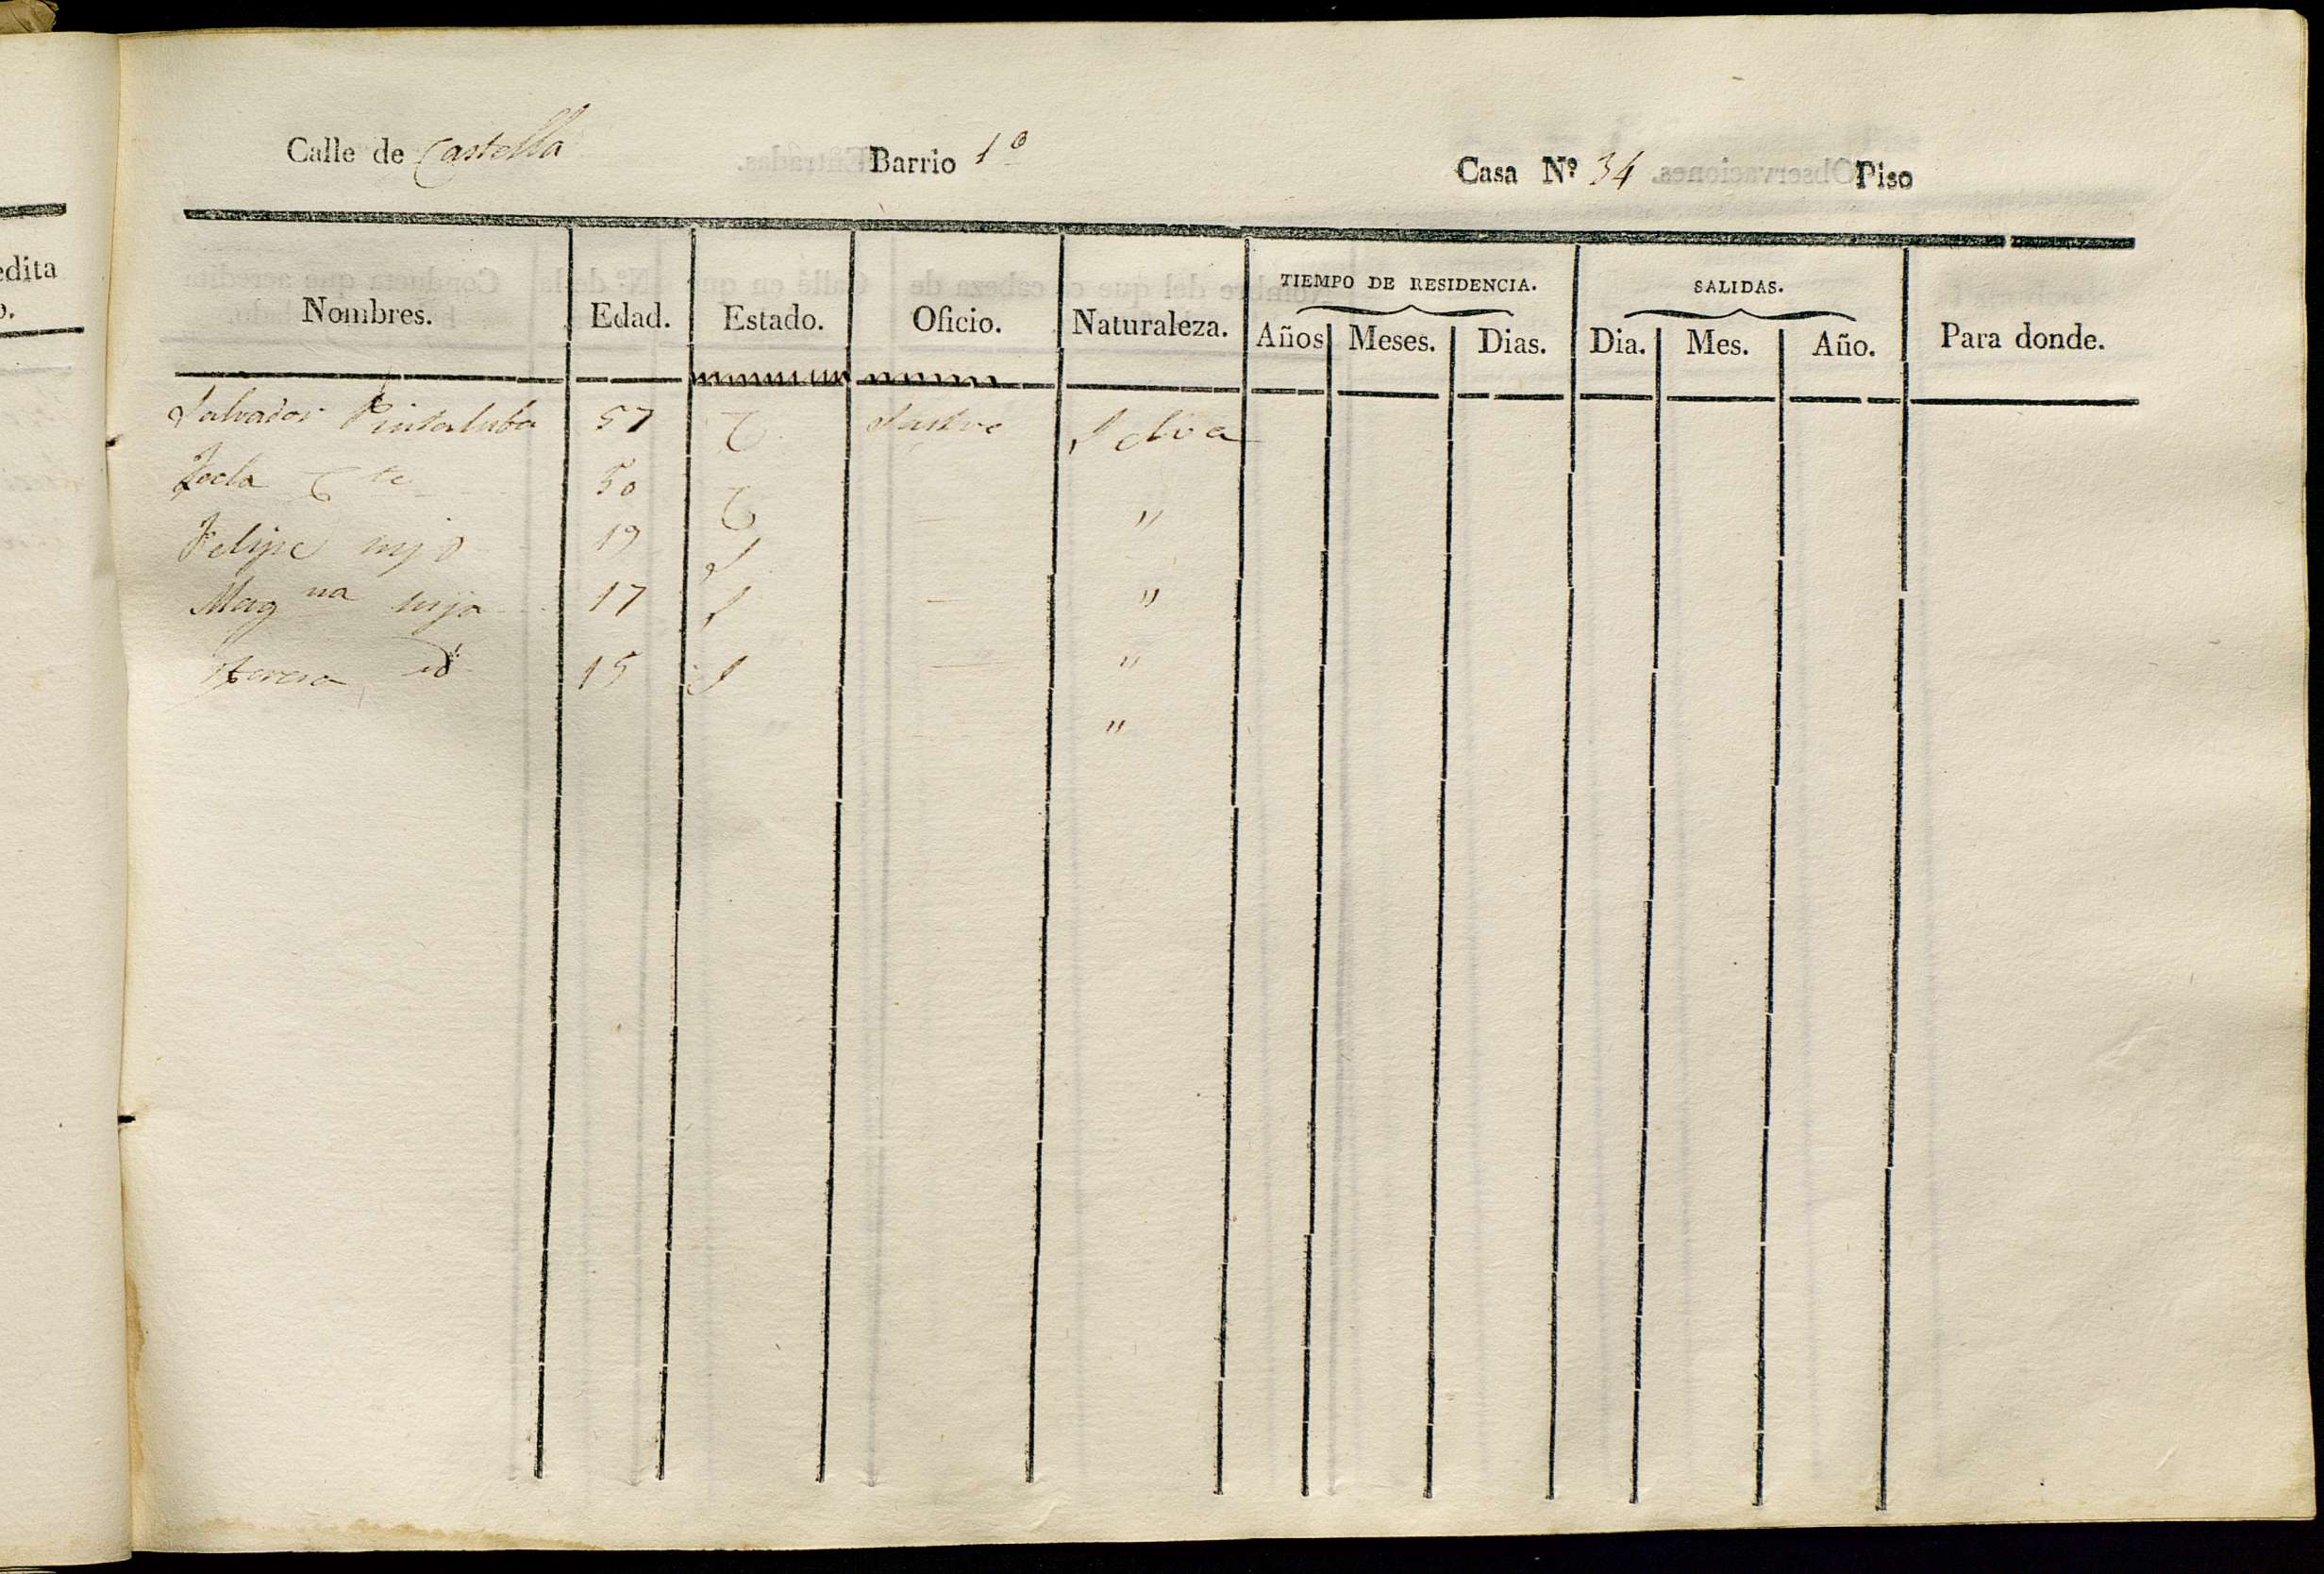 edita
o.
Calle de Castella Barrio 1º Casa Nº 34 Piso
TIEMPO DE RESIDENCIA. SALIDAS.
Nombres. Edad. Estado. Oficio. Naturaleza. Años Meses. Dias. Dia. Mes. Año. Para donde.
Salvador Pintaluba 57 C. Sastre Selva
Tecla C te 50 C "
Felipe hijo 19 S "
Mag na hija 17 S — "
Teresa id. 15 S — "